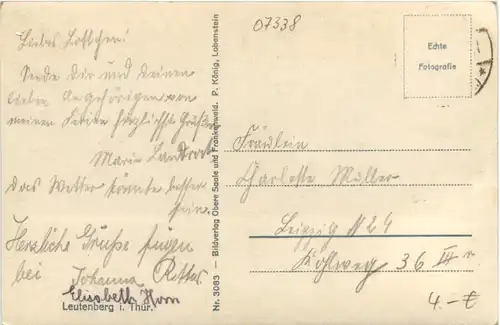 07338
Liebes Lottchen!
Sende Dir und Deinen
lieben Angehörigen von
meinen Ferien herzlichste Grüße
Marie Landrock
Das Wetter könnte besser
sein.
Herzliche Grüße fügen
bei Johanna
Elisabeth Horn
Leutenberg i. Thür.
Nr. 3083 — Bildverlag Obere Saale und Frankenwald. P. König, Lobenstein
Echte
Fotografie
Fräulein
Charlotte Müller
Leipzig N 24
Kohlweg 36 III r
4.- €